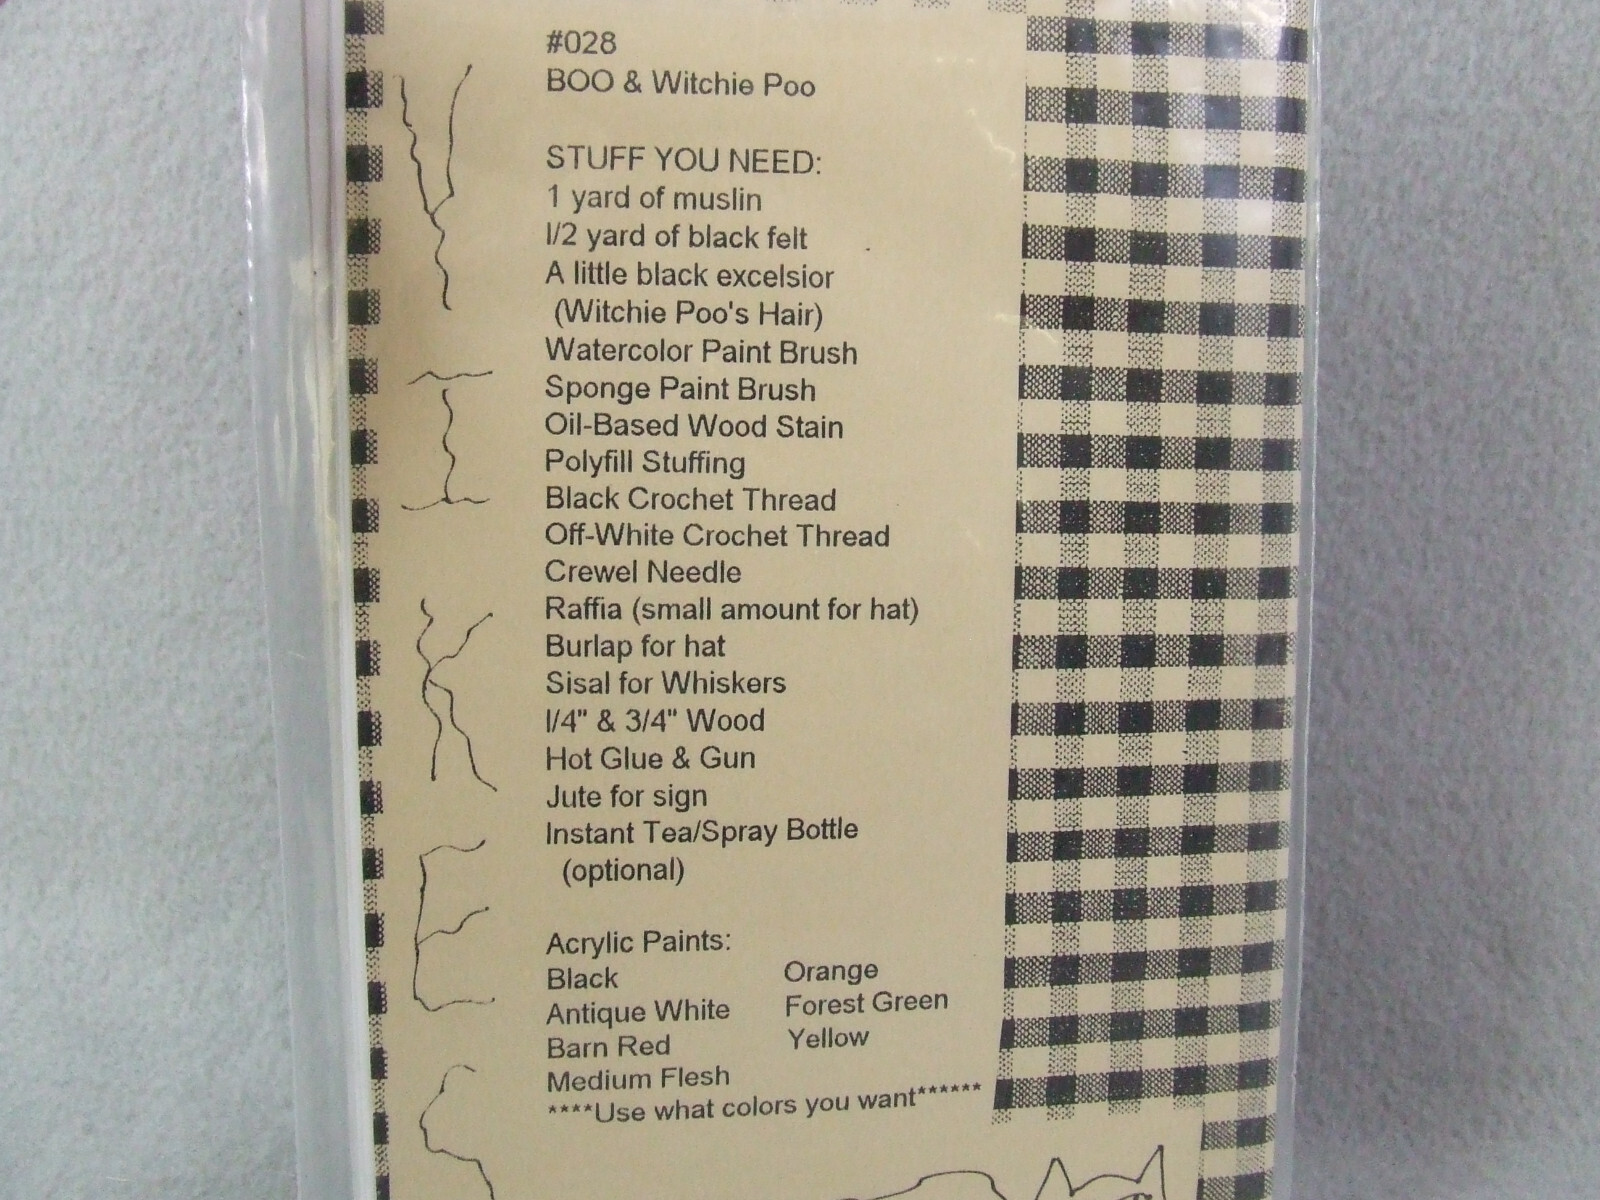 #028
BOO & Witchie Poo
STUFF YOU NEED:
1 yard of muslin
l/2 yard of black felt
A little black excelsior
(Witchie Poo's Hair)
Watercolor Paint Brush
Sponge Paint Brush
Oil-Based Wood Stain
Polyfill Stuffing
Black Crochet Thread
Off-White Crochet Thread
Crewel Needle
Raffia (small amount for hat)
Burlap for hat
Sisal for Whiskers
l/4" & 3/4" Wood
Hot Glue & Gun
Jute for sign
Instant Tea/Spray Bottle
(optional)
Acrylic Paints:
Black Orange
Antique White Forest Green
Barn Red Yellow
Medium Flesh
****Use what colors you want******
Y
I
K
E
S